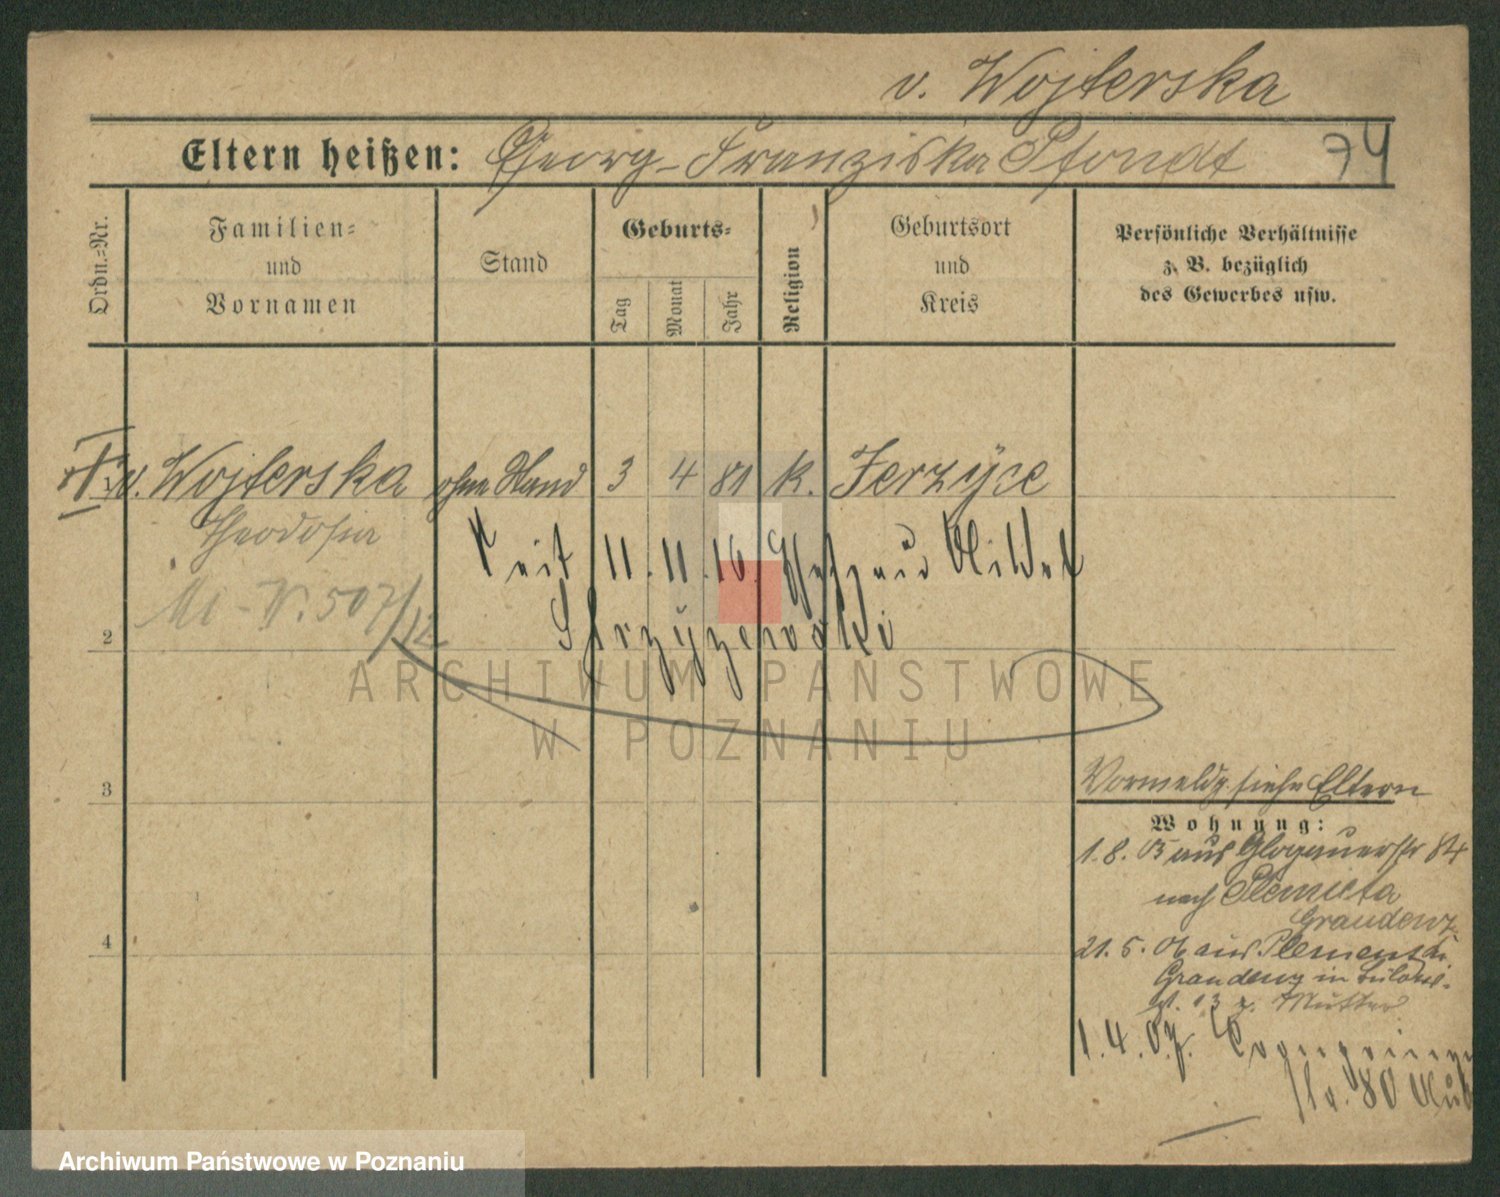 v. Wojterska
Eltern heißen: Georg - Franziska Pfondt
74
Ordn.=Nr.
Familien=
und
Vornamen
Stand
Geburts=
Tag
Monat
Jahr
Religion
Geburtsort
und
Kreis
Persönliche Verhältnisse
z. B. bezüglich
des Gewerbes usw.
1 v. Wojterska ohne Stand 3 4 81 k. Jerzyce
Theodosia
seit 11. 11. 16.
V. 507/12
2
3
4
ARCHIWUM PAŃSTWOWE
W POZNANIU
Vormeldg. siehe Eltern
Wohnung:
1. 8. 05 aus Glogauerstr 84
nach
Graudenz
21. 5. 06 aus
Graudenz in
13 z. Mutter
1. 4. 07.
80
Archiwum Państwowe w Poznaniu